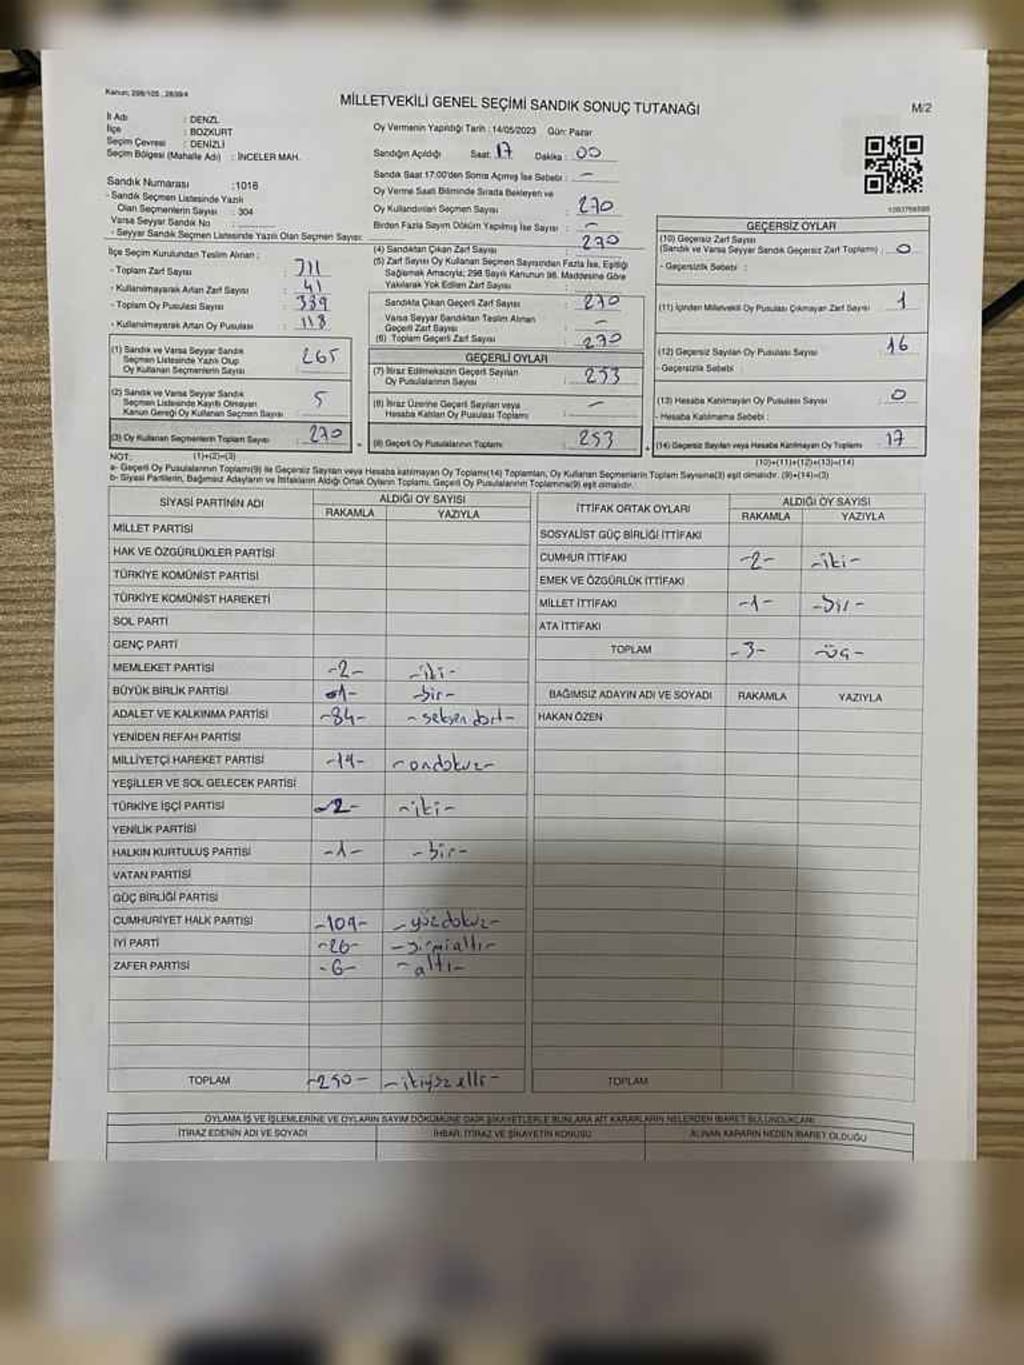 Kanun: 298/105, 2839/4
MİLLETVEKİLİ GENEL SEÇİMİ SANDIK SONUÇ TUTANAĞI
M/2
İl Adı : DENZL
İlçe : BOZKURT
Seçim Çevresi : DENİZLİ
Seçim Bölgesi (Mahalle Adı) : İNCELER MAH.
Sandık Numarası : 1016
- Sandık Seçmen Listesinde Yazılı
Olan Seçmenlerin Sayısı : 304
Varsa Seyyar Sandık No :
- Seyyar Sandık Seçmen Listesinde Yazılı Olan Seçmen Sayısı:
İlçe Seçim Kurulundan Teslim Alınan :
- Toplam Zarf Sayısı : 311
- Kullanılmayarak Artan Zarf Sayısı : 41
- Toplam Oy Pusulası Sayısı : 339
- Kullanılmayarak Artan Oy Pusulası : 118
(1) Sandık ve Varsa Seyyar Sandık
Seçmen Listesinde Yazılı Olup
Oy Kullanan Seçmenlerin Sayısı : 265
(2) Sandık ve Varsa Seyyar Sandık
Seçmen Listesinde Kayıtlı Olmayan
Kanun Gereği Oy Kullanan Seçmen Sayısı : 5
(3) Oy Kullanan Seçmenlerin Toplam Sayısı : 270
(1)+(2)=(3)
Oy Vermenin Yapıldığı Tarih : 14/05/2023 Gün: Pazar
Sandığın Açıldığı Saat: 17 Dakika : 00
Sandık Saat 17:00'den Sonra Açılmış İse Sebebi : -
Oy Verme Saati Bitiminde Sırada Bekleyen ve
Oy Kullandırılan Seçmen Sayısı : 270
Birden Fazla Sayım Döküm Yapılmış İse Sayısı : -
(4) Sandıktan Çıkan Zarf Sayısı : 270
(5) Zarf Sayısı Oy Kullanan Seçmen Sayısından Fazla İse, Eşitliği
Sağlamak Amacıyla; 298 Sayılı Kanunun 98. Maddesine Göre
Yakılarak Yok Edilen Zarf Sayısı :
Sandıkta Çıkan Geçerli Zarf Sayısı : 270
Varsa Seyyar Sandıktan Teslim Alınan
Geçerli Zarf Sayısı : -
(6) Toplam Geçerli Zarf Sayısı : 270
GEÇERLİ OYLAR
(7) İtiraz Edilmeksizin Geçerli Sayılan
Oy Pusulalarının Sayısı : 253
(8) İtiraz Üzerine Geçerli Sayılan veya
Hesaba Katılan Oy Pusulası Toplamı : -
(9) Geçerli Oy Pusulalarının Toplamı : 253
GEÇERSİZ OYLAR
(10) Geçersiz Zarf Sayısı
(Sandık ve Varsa Seyyar Sandık Geçersiz Zarf Toplamı) : 0
- Geçersizlik Sebebi :
(11) İçinden Milletvekili Oy Pusulası Çıkmayan Zarf Sayısı : 1
(12) Geçersiz Sayılan Oy Pusulası Sayısı : 16
- Geçersizlik Sebebi :
(13) Hesaba Katılmayan Oy Pusulası Sayısı : 0
- Hesaba Katılmama Sebebi :
(14) Geçersiz Sayılan veya Hesaba Katılmayan Oy Toplamı : 17
(10)+(11)+(12)+(13)=(14)
NOT:
a- Geçerli Oy Pusulalarının Toplamı(9) ile Geçersiz Sayılan veya Hesaba katılmayan Oy Toplamı(14) Toplamları, Oy Kullanan Seçmenlerin Toplam Sayısına(3) eşit olmalıdır. (9)+(14)=(3)
b- Siyasi Partilerin, Bağımsız Adayların ve İttifakların Aldığı Ortak Oyların Toplamı, Geçerli Oy Pusulalarının Toplamına(9) eşit olmalıdır.
SİYASİ PARTİNİN ADI ALDIĞI OY SAYISI
RAKAMLA YAZIYLA
MİLLET PARTİSİ
HAK VE ÖZGÜRLÜKLER PARTİSİ
TÜRKİYE KOMÜNİST PARTİSİ
TÜRKİYE KOMÜNİST HAREKETİ
SOL PARTİ
GENÇ PARTİ
MEMLEKET PARTİSİ -2- -iki-
BÜYÜK BİRLİK PARTİSİ 1- -bir-
ADALET VE KALKINMA PARTİSİ -84- -seksen dört-
YENİDEN REFAH PARTİSİ
MİLLİYETÇİ HAREKET PARTİSİ -19- -ondokuz-
YEŞİLLER VE SOL GELECEK PARTİSİ
TÜRKİYE İŞÇİ PARTİSİ -2- -iki-
YENİLİK PARTİSİ
HALKIN KURTULUŞ PARTİSİ -1- -bir-
VATAN PARTİSİ
GÜÇ BİRLİĞİ PARTİSİ
CUMHURİYET HALK PARTİSİ -109- -yüzdokuz-
İYİ PARTİ -26- -yirmialtı-
ZAFER PARTİSİ -6- -altı-
TOPLAM -250- -ikiyüzelli-
İTTİFAK ORTAK OYLARI ALDIĞI OY SAYISI
RAKAMLA YAZIYLA
SOSYALİST GÜÇ BİRLİĞİ İTTİFAKI
CUMHUR İTTİFAKI -2- -iki-
EMEK VE ÖZGÜRLÜK İTTİFAKI
MİLLET İTTİFAKI -1- -bir-
ATA İTTİFAKI
TOPLAM -3- -üç-
BAĞIMSIZ ADAYIN ADI VE SOYADI RAKAMLA YAZIYLA
HAKAN ÖZEN
TOPLAM
OYLAMA İŞ VE İŞLEMLERİNE VE OYLARIN SAYIM DÖKÜMÜNE DAİR ŞİKAYETLERLE BUNLARA AİT KARARLARIN NELERDEN İBARET BULUNDUKLARI
İTİRAZ EDENİN ADI VE SOYADI İHBAR, İTİRAZ VE ŞİKAYETİN KONUSU ALINAN KARARIN NEDEN İBARET OLDUĞU